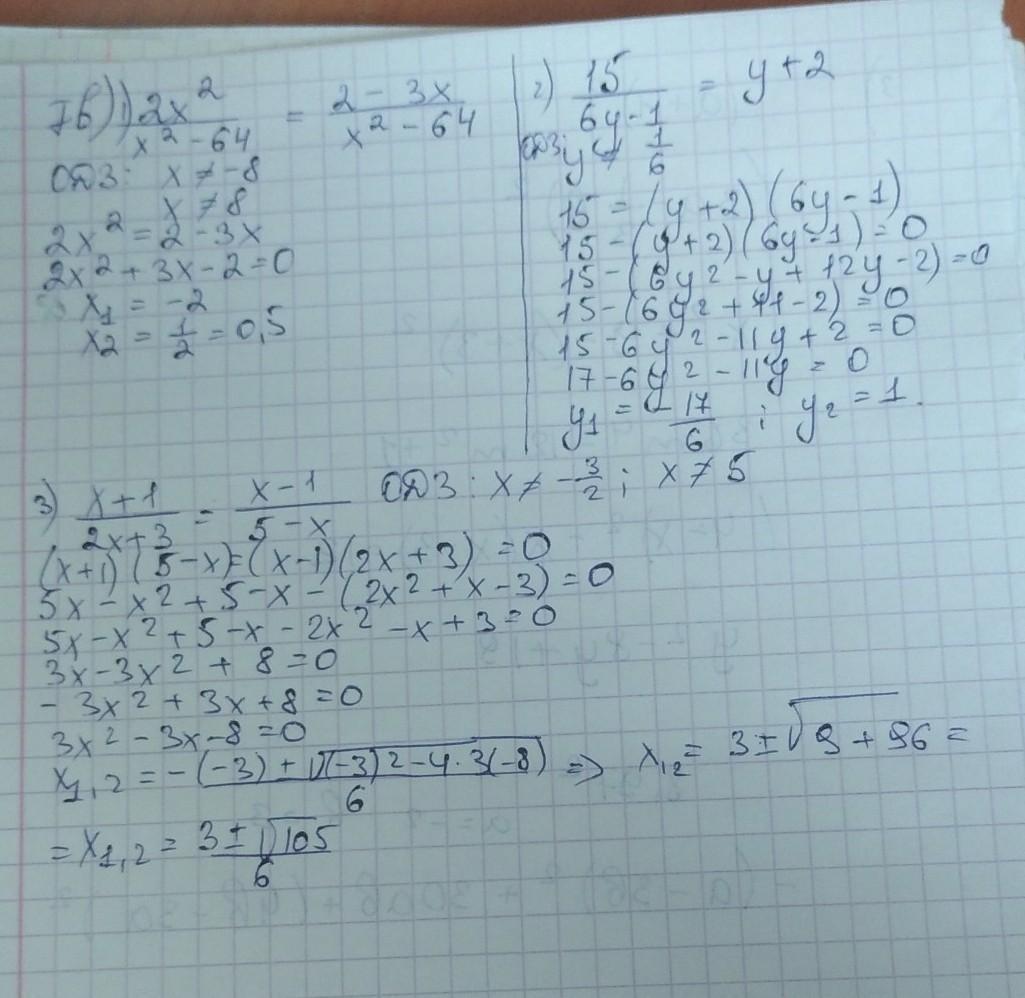 76) 1) 2x²/(x² - 64) = (2 - 3x)/(x² - 64)
ОДЗ: x ≠ -8
x ≠ 8
2x² = 2 - 3x
2x² + 3x - 2 = 0
x₁ = -2
x₂ = 1/2 = 0,5
2) 15/(6y - 1) = y + 2
ОДЗ: y ≠ 1/6
15 = (y + 2)(6y - 1)
15 - (y + 2)(6y - 1) = 0
15 - (6y² - y + 12y - 2) = 0
15 - (6y² + 11 - 2) = 0
15 - 6y² - 11y + 2 = 0
17 - 6y² - 11y = 0
y₁ = - 17/6 ; y₂ = 1.
3) (x + 1)/(2x + 3) = (x - 1)/(5 - x) ОДЗ: x ≠ - 3/2 ; x ≠ 5
(x + 1)(5 - x) - (x - 1)(2x + 3) = 0
5x - x² + 5 - x - (2x² + x - 3) = 0
5x - x² + 5 - x - 2x² - x + 3 = 0
3x - 3x² + 8 = 0
- 3x² + 3x + 8 = 0
3x² - 3x - 8 = 0
x₁,₂ = (-(-3) + √((-3)2 - 4·3(-8)))/6 => x,₂ = 3 ± √9 + 96 =
= x₁,₂ = (3 ± √105)/6